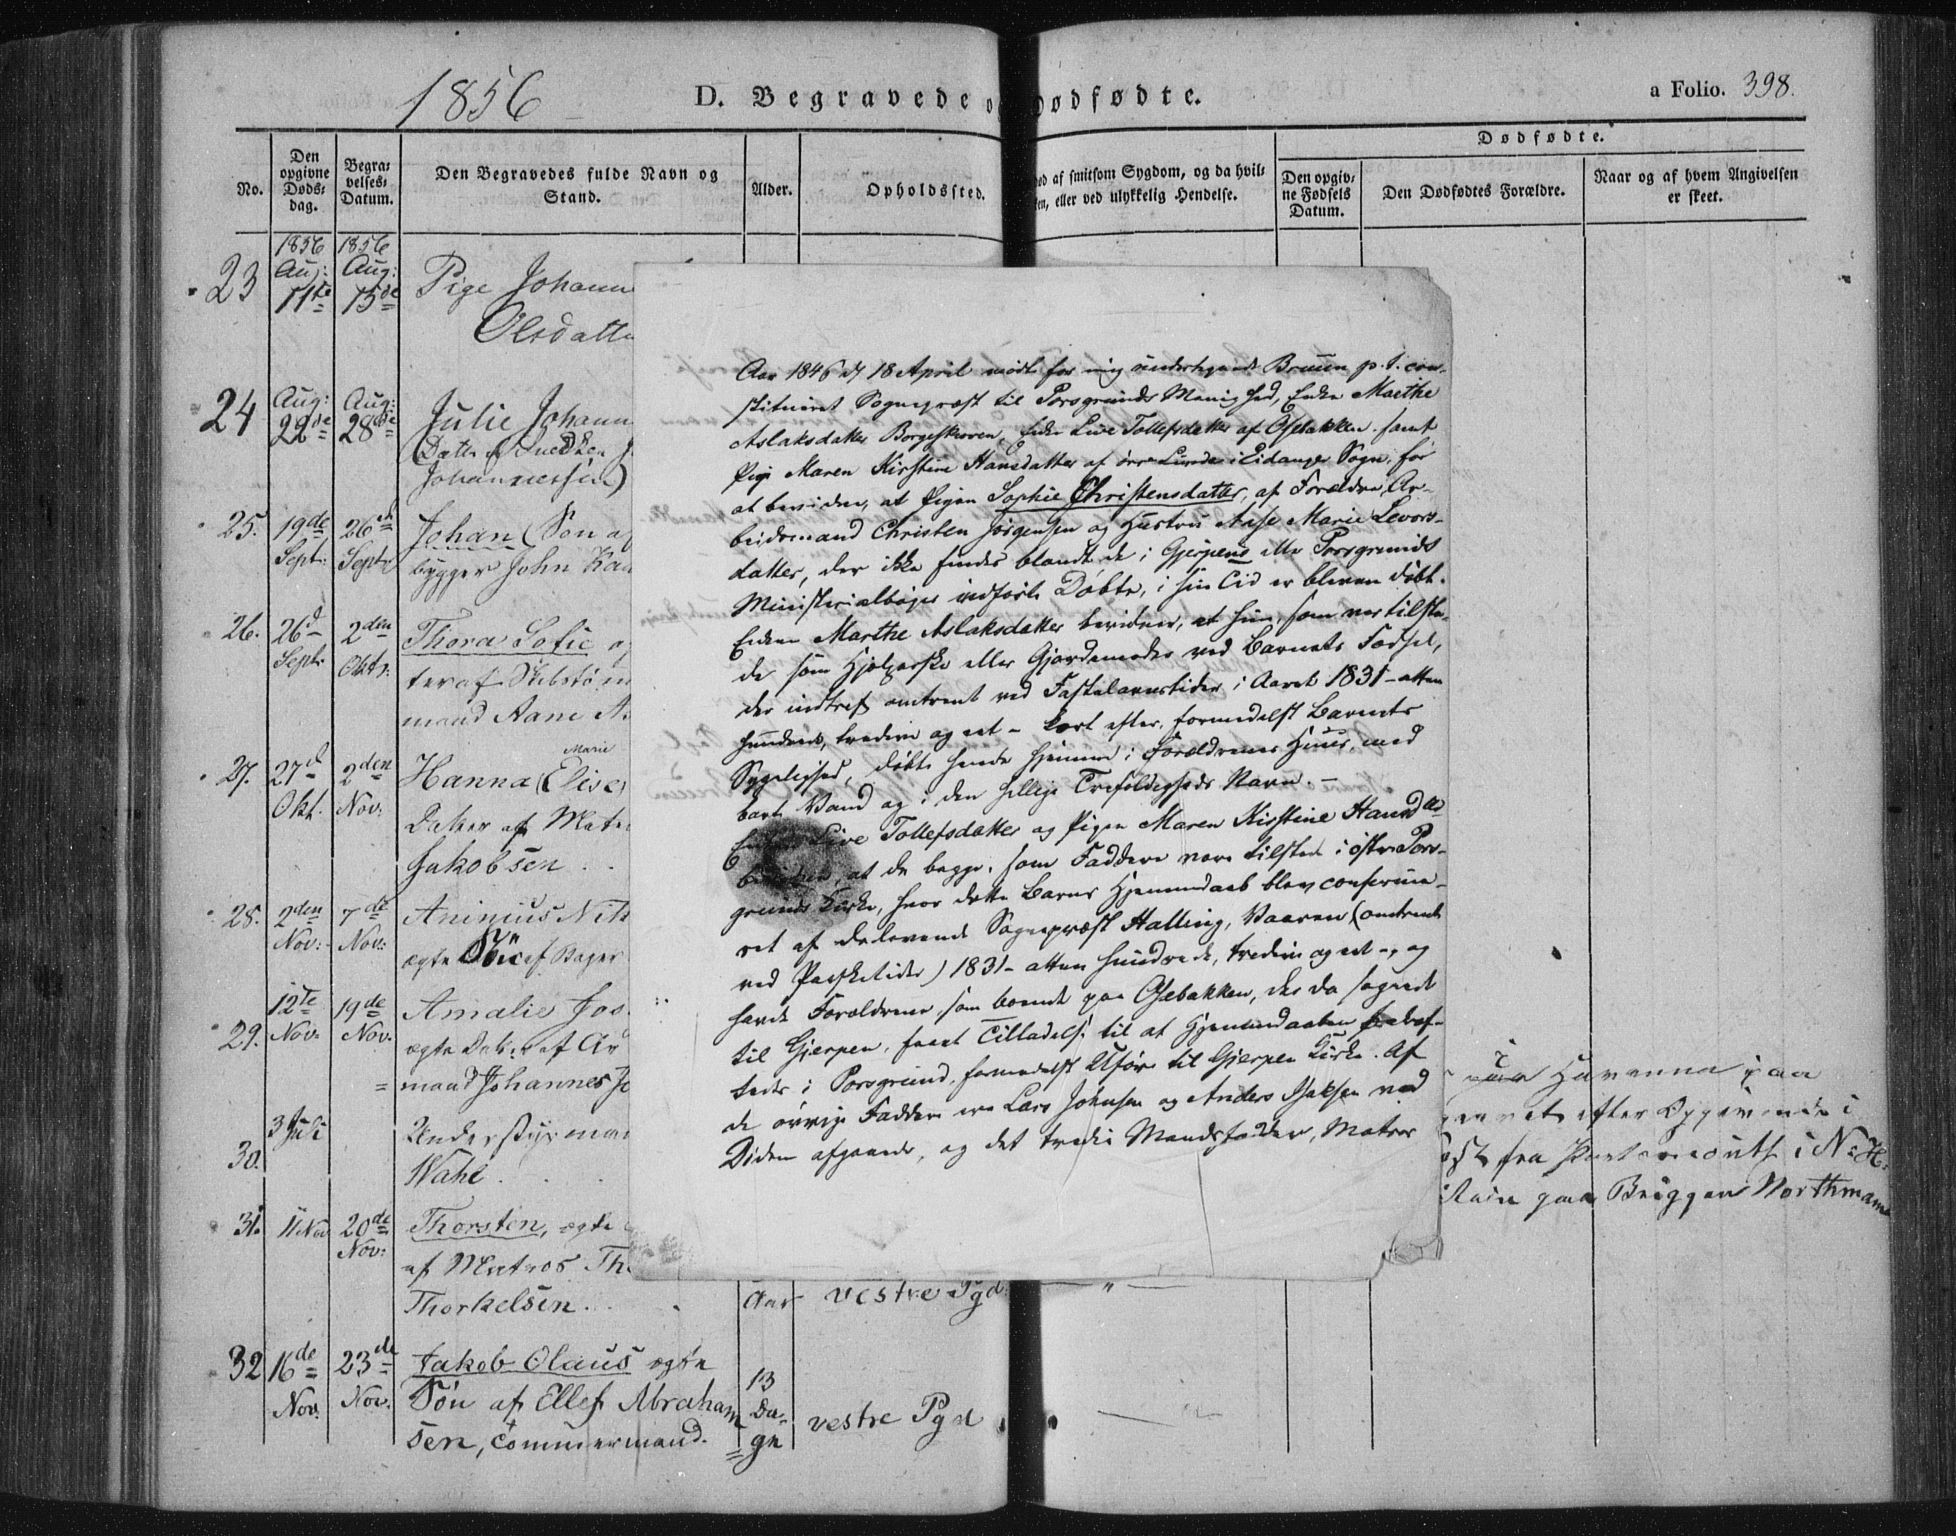 1856
D. Begravede o Dødfødte.
a Folio. 398.
No.
Den opgivne Døds-dag.
Begra-velses-Datum.
Den Begravedes fulde Navn og Stand.
Alder.
Opholdssted.
ød af smitsom Sygdom, og da hvil-
ken, eller ved ulykkelig Hendelse.
Dødfødte.
Den opgiv-ne Fødsels Datum.
Den Dødfødtes Forældre.
Naar og af hvem Angivelsen er skeet.
23 1856 Aug: 11te 1856 Aug: 15de Pige Johann
Olsdatte
24 Aug: 22de Aug: 28de Julie Johann
(Datter af Snedker J
Johannessen)
25. 19de Sept: 26de Sept: Johan (Søn af
bygger John Kaa
26. 26d Sept: 2den Oktr: Thora Sofie og
ter af Skibstøm
mand Aane A
27. 27d Okt. 2den Nov: Hanna (Elise Marie
Datter af Matr
Jakobsen
28. 2den Nov: 7de Nov: Aninius Nik
ægte Søn af Bager
29. 12te Nov: 19de Nov: Amalie Jos
ægte Dat: af Ar
mand Johannes J
30. 3 Juli Understyrman
Wahl
31. 11 Nov 20de Nov: Thorsten, ægte
af Matros Th
Thorkelsen. Aar vestre Pgd. "
32 16de Nov. 23de Nov. Jakob Olaus ægte
Søn af Ellef Abraham 13 Da-
sen, tømmermand. ge vestre Pgd
Aar 1846 d 18 April mødte for mig undertegnede Bruun p. t. con-
stitueret Sognepræst til Porsgrunds Menighed, Enke Marthe
Aslaksdatter Borgeskoven, Enke Live Tollefsdatter af Osebakken samt
Pige Maren Kirstine Hansdatter af øvre Lunde i Eidanger Sogn, for
at bevidne, at Pigen Sophie Christensdatter, af Forældre Ar-
beidsmand Christen Jørgensen og Hustru Anse Marie Levors-
datter, der ikke findes blandt de i Gjerpens eller Porsgrunds
Ministerialbøger indførte Døbte, i sin Tid er bleven døbt.
Enken Marthe Aslaksdatter bevidner, at hun, som var tilste-
de som Hjelperske eller Gjordemoder ved Barnets Fødsel,
der indtraf omtrent ved Fastelavnstider i Aaret 1831 - atten
hundrede, tredive og eet - kort efter, formedelst Barnets
Sygelighed, døbte hende hjemme i Forældrenes Huus, med
bart Vand og i den hellige Trefoldigheds Navn. -
Enken Live Tollefsdatter og Pigen Maren Kirstine Hansd
bevidner, at de begge, som Faddere vare tilstede i østre Pors-
grunds Kirke, hvor dette Barns Hjemmedaab blev confirme-
ret af dalevende Sognepræst Halling, Vaaren (omtrent
ved Paasketider) 1831 - atten hundrede, tredive og eet -, og
havde Forældrene, som boende paa Osebakken, der da sognede
til Gjerpen, faaet Tilladelse til at Hjemmedaaben bekræf-
tedes i Porsgrund, formedelst Uføre til Gjerpen Kirke. Af
de øvrige Faddere ere Lars Johnsen og Anders Isaksen ved
Døden afgaaede, og det tredie Mandsfadder, Matros
Havanna paa
efter Opgivende i
fra i N: H:
paa Briggen Northmann